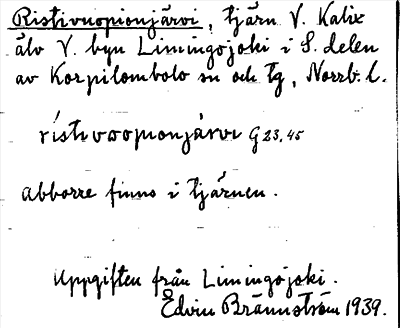 Ristivuopionjärvi, tjärn V. Kalix
älv V. byn Limingojoki i S. delen
av Korpilombolo sn och tg, Norrb. l.
rísti vuopionjärvi G 23, 45
abborre finns i tjärnen.
Uppgiften från Limingojoki.
Edvin Brännström 1939.